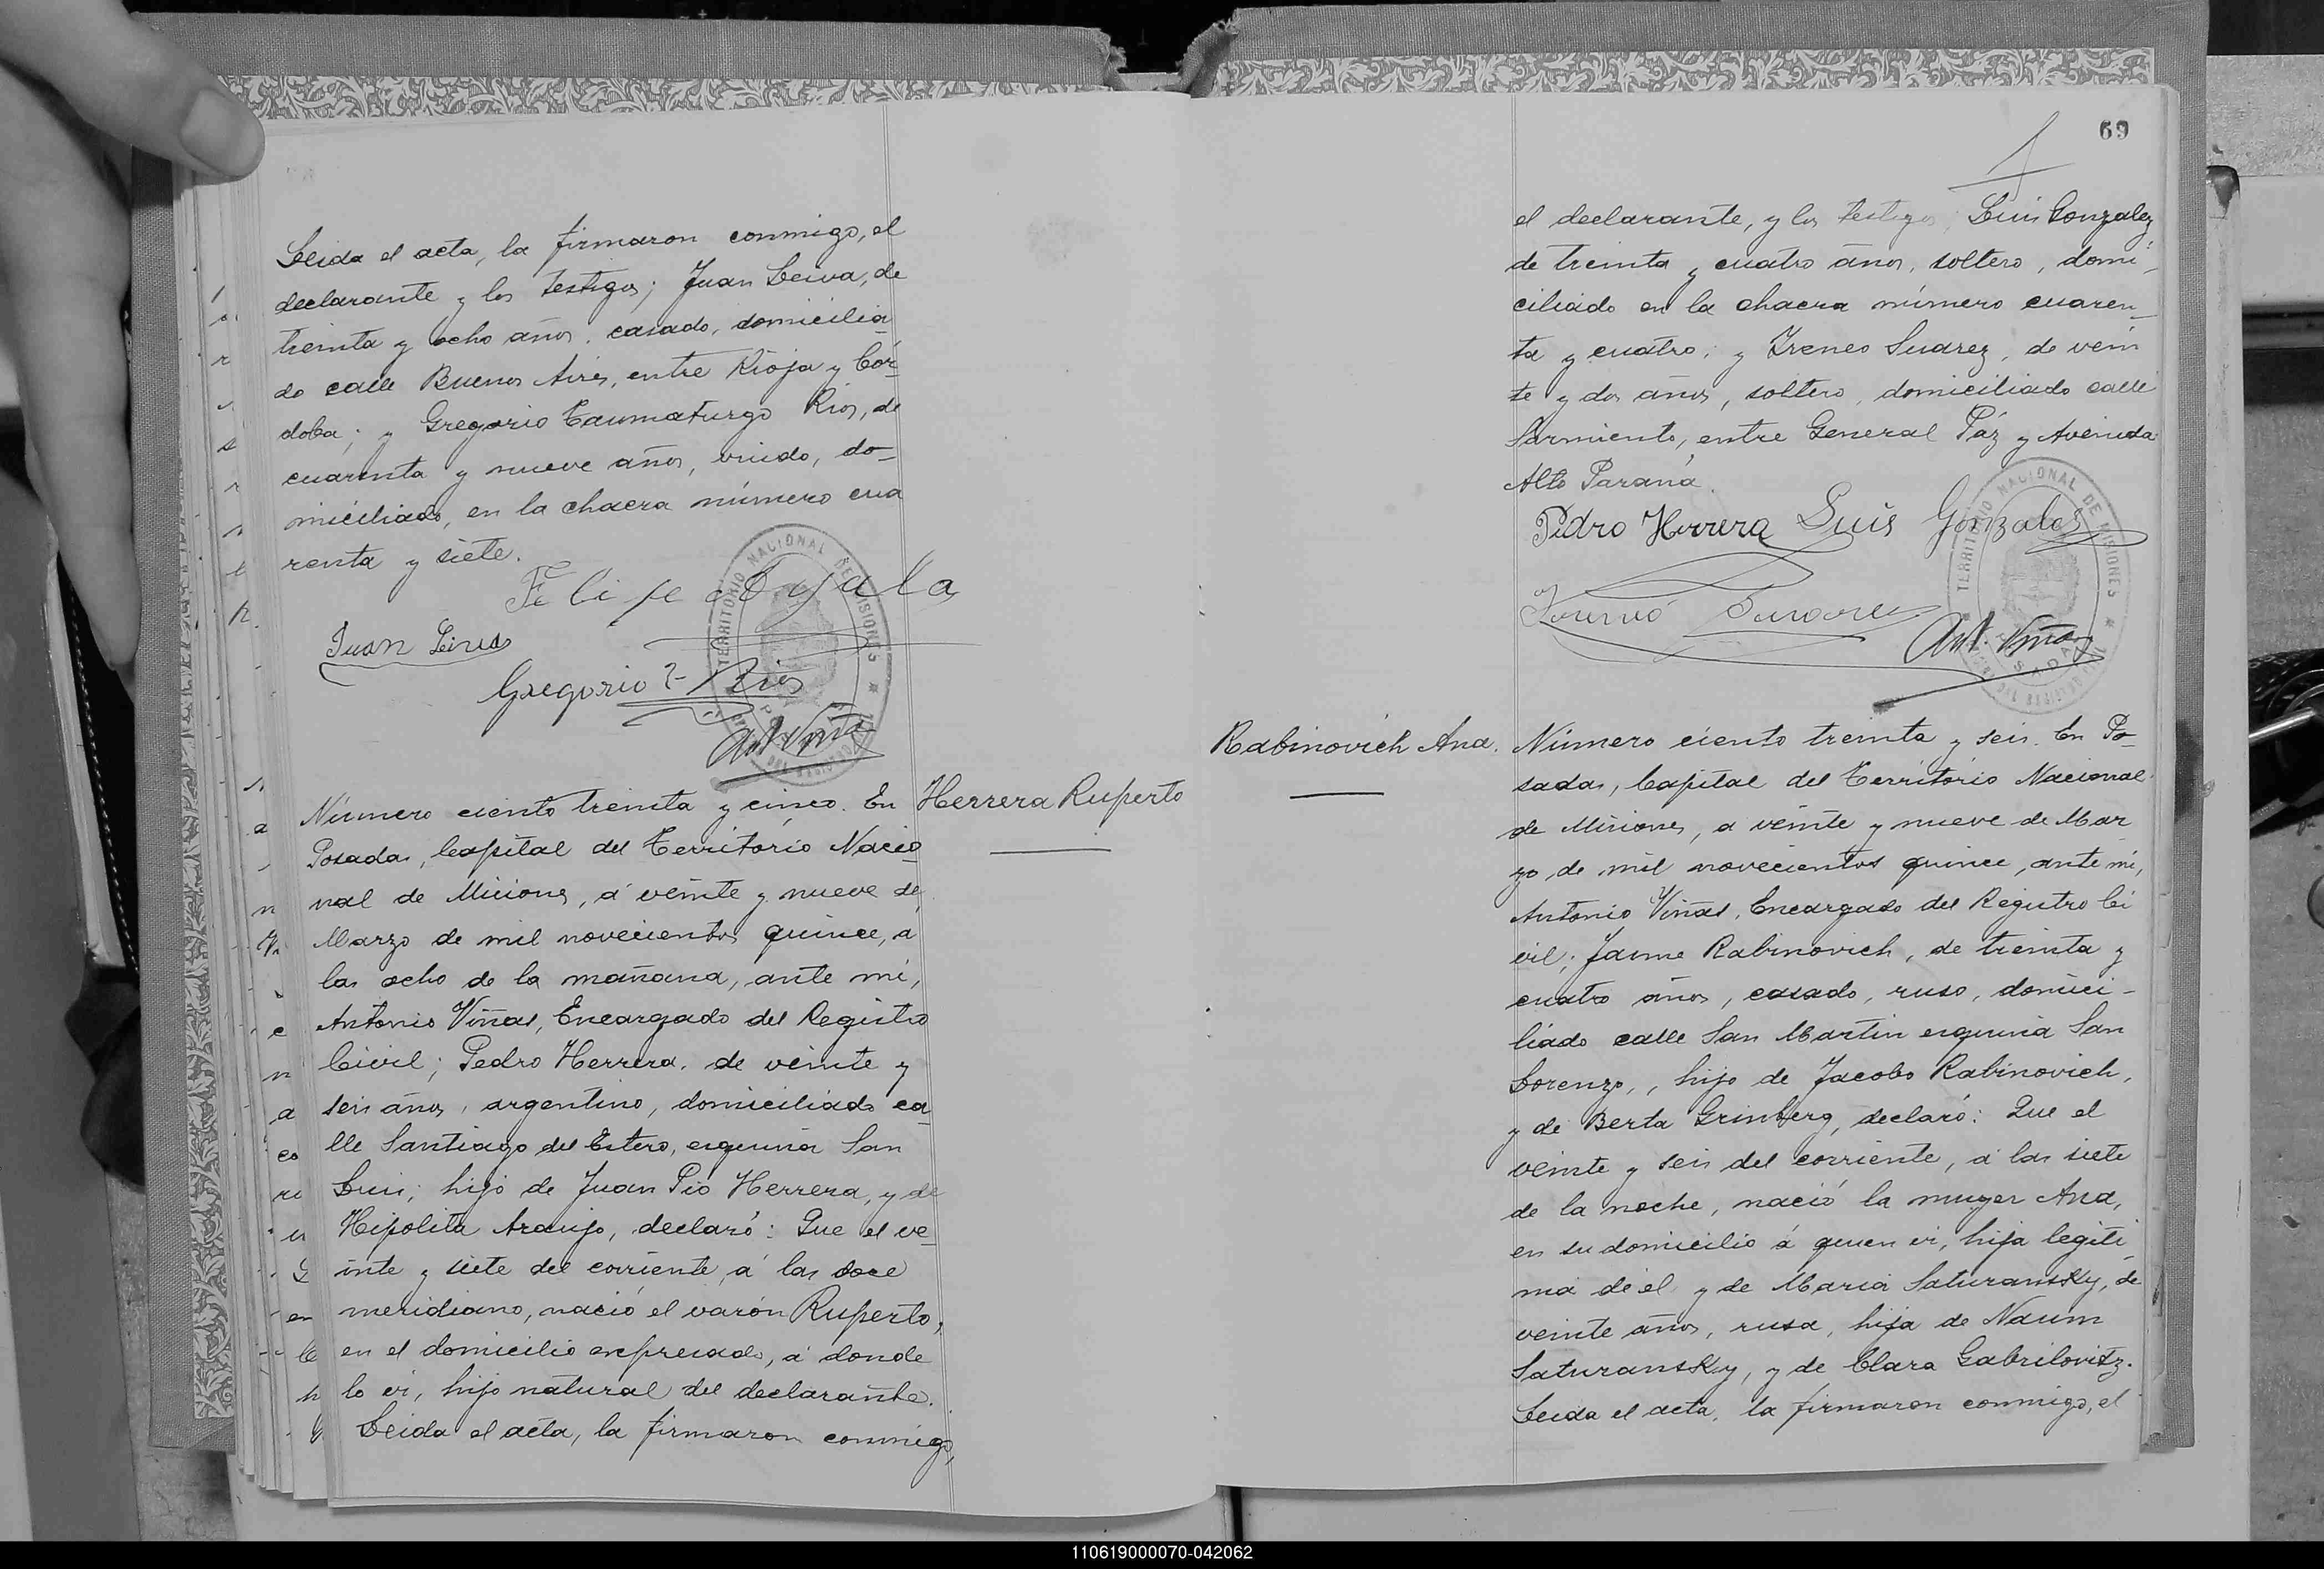 Leida el acta, la firmaron conmigo, el
declarante y los testigos; Juan Leiva, de
treinta y ocho años, casado, domicilia
do calle Buenos Aires, entre Rioja y Cór-
doba; y Gregorio Taumaturgo Rios, de
cuarenta y nueve años, viudo, do-
miciliado, en la chacra número cua
renta y siete.
Felipe Ayala
Juan Leiva
Gregorio T Rios
Ant. Viñas
TERRITORIO NACIONAL DE MISIONES
Número ciento treinta y cinco. En
Herrera Ruperto
Posadas, Capital del Território Nacio
nal de Miciones, á veinte y nueve de
Marzo de mil novecientos quince, a
las ocho de la mañana, ante mi,
Antonio Viñas, Encargado del Registro
Civil; Pedro Herrera, de veinte y
seis años, argentino, domiciliado ca-
lle Santiago del Estero, esquina San
Luis; hijo de Juan Pio Herrera, y de
Hipolita Araujo, declaró: Que el ve-
inte y siete del corriente, á las doce
meridiano, nació el varón Ruperto,
en el domicilio expresado, á donde
lo vi, hijo natural del declarante.
Leida el acta, la firmaron conmigo,
69
el declarante, y los testigos; Luis Gonzalez
de treinta y cuatro años, soltero, domi-
ciliado en la chacra número cuaren-
ta y cuatro; y Ireneo Suarez, de vein
te y dos años, soltero, domiciliado calle
Sarmiento, entre General Páz y Avenida
Alto Paraná.
Pedro Herrera Luis Gonzales
Ant. Viñas
TERRITORIO NACIONAL DE MISIONES
Rabinovich Ana.
Número ciento treinta y seis. En Po-
sadas, Capital del Território Nacional
de Misiones, a veinte y nueve de Mar
zo de mil novecientos quince, ante mi,
Antonio Viñas, Encargado del Registro Ci
vil; Jaime Rabinovich, de treinta y
cuatro años, casado, ruso, domici-
liado calle San Martin esquina San
Lorenzo, hijo de Jacobo Rabinovich,
y de Berta Grinberg, declaró: Que el
veinte y seis del corriente, á las siete
de la noche, nació la muger Ana,
en su domicilio á quien vi, hija legiti
ma de él y de Maria Saturansky, de
veinte años, rusa, hija de Naum
Saturansky, y de Clara Gabrilovitz.
Leida el acta, la firmaron conmigo, el
110619000070-042062